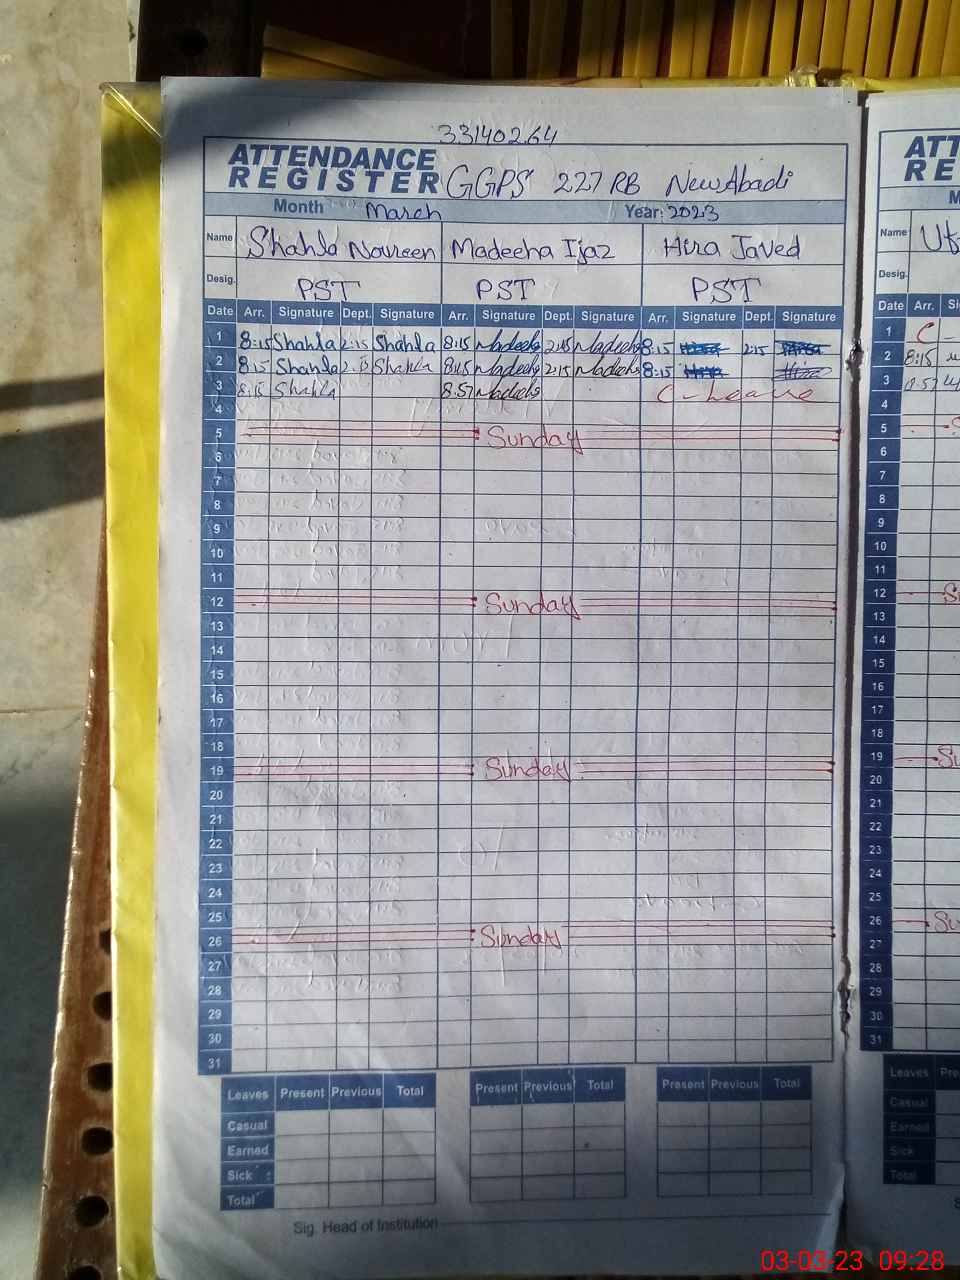 33140264
ATTENDANCE
REGISTER GGPS 227 RB New Abadi
Month March Year: 2023
Name Shahla Navreen Madeeha Ijaz Hira Javed
Desig. PST PST PST
Date Arr. Signature Dept. Signature Arr. Signature Dept. Signature Arr. Signature Dept. Signature
1 8:15 Shahla 2:15 Shahla 8:15 Madeeha 2:15 Madeeha 8:15 2:15
2 8:15 Shahla Shahla 8:15 Madeeha 2:15 Madeeha 8:15
3 8:15 Shahla 8:57 Madeeha C-Leave
4
5 Sunday
6
7
8
9
10
11
12 Sunday
13
14
15
16
17
18
19 Sunday
20
21
22
23
24
25
26 Sunday
27
28
29
30
31
Leaves Present Previous Total Present Previous Total Present Previous Total
Casual
Earned
Sick :
Total
Sig. Head of Institution
ATT
RE
M
Name
Desig.
Date Arr. Si
1 C
2 8:15
3 8:57
4
5
6
7
8
9
10
11
12
13
14
15
16
17
18
19
20
21
22
23
24
25
26
27
28
29
30
31
Leaves Pre
Casual
Earned
Sick
Total
03-03-23 09:28